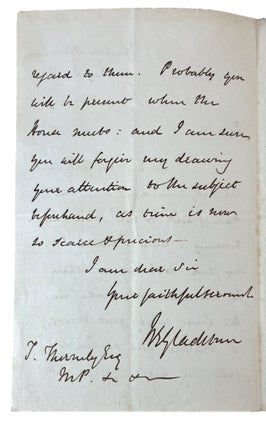 regard to them. Probably you
will be present when the
House meets: and I am sure
you will forgive my drawing
your attention to the subject
beforehand, as time is now
so scarce & precious—
I am dear Sir
Your faithful servant
WEGladstone
T. Thornely Esq
MP. &c &c